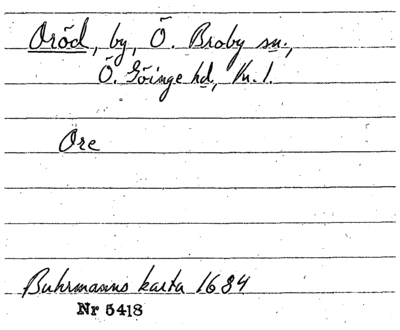 Oröd, by, Ö. Broby sn.,
Ö. Göinge hd, Kr. l.
Ore
Buhrmanns karta 1684
Nr 5418